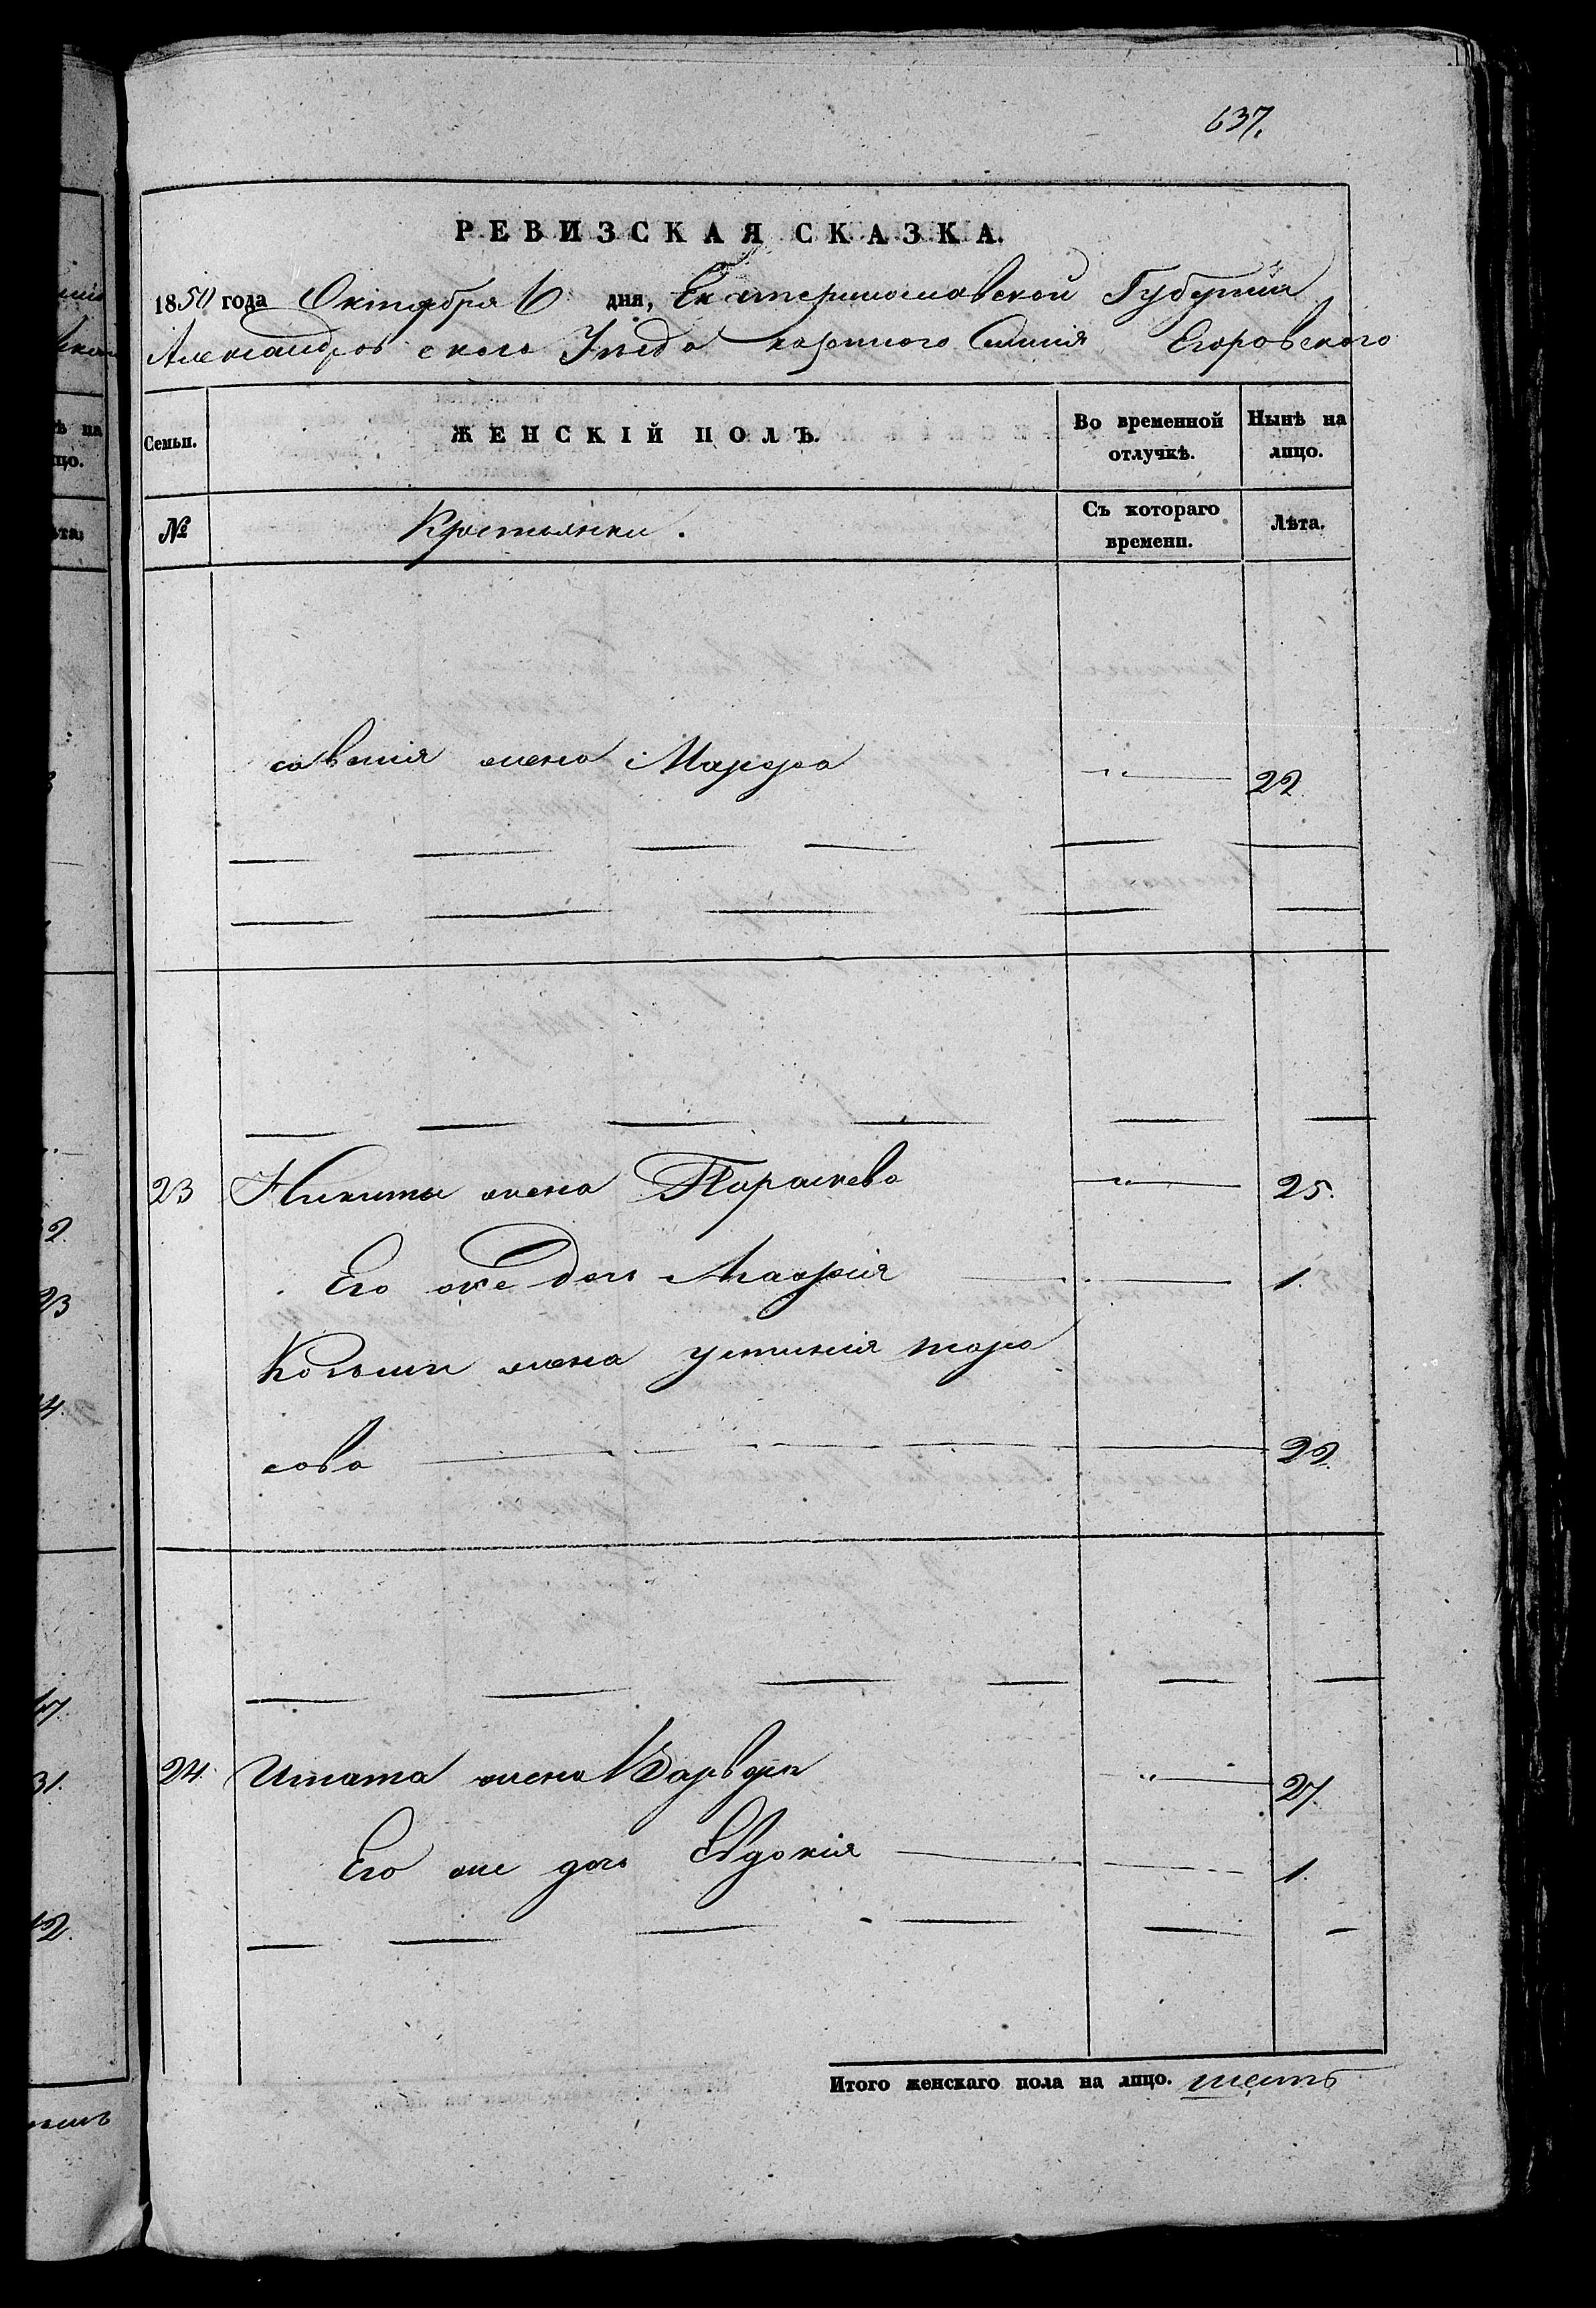 637.
РЕВИЗСКАЯ СКАЗКА.
1850 года Октября 6 дня, Екатеринославской Губернии
Александровского Уезда казенного Селения Егоровского
Семьи. ЖЕНСКІЙ ПОЛЪ. Во временной отлучкѣ. Нынѣ на лицо.
№ Крестьянки. Съ котораго времени. Лѣта.
савелия жена Марфа 22
23 Никиты жена Параскева 25.
Его же дочь 1.
Козьмы жена устиния тара
сова 22.
24. Игната жена Варвара 27
Его же дочь Евдокия 1.
Итого женскаго пола на лицо. шесть